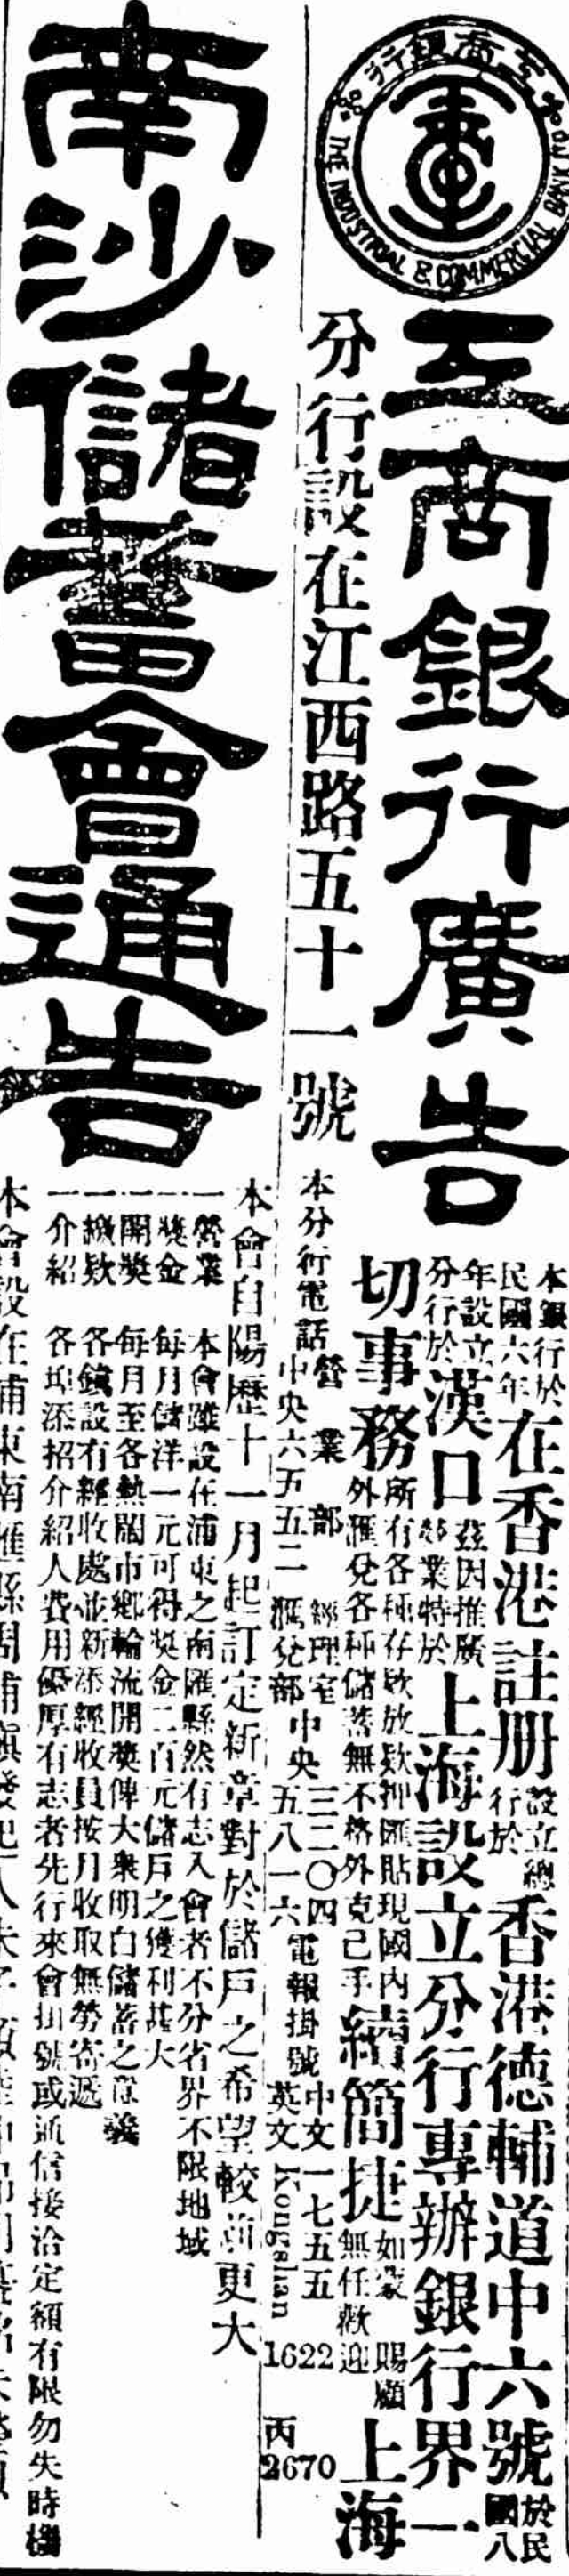 行銀商工
THE INDUSTRIAL & COMMERCIAL BANK
工商銀行廣告
分行設在江西路五十一號
本銀行於民國六年在香港註册設立總行於香港德輔道中六號於民國八
年設立分行於漢口茲因推廣營業特於上海設立分行專辦銀行界一
切事務所有各種存欵放欵押匯貼現國內外滙兌各種儲蓄無不格外克己手續簡捷如蒙賜顧無任歡迎上海
本分行電話營業部中央六五五二經理室中央三二〇四滙兌部五八一六電報掛號中文一七五五英文Kongshan
1622
丙2670
南沙儲蓄會通告
本會自陽歷十一月起訂定新章對於儲戶之希望較前更大
一營業 本會雖設在浦東之南匯縣然有志入會者不分省界不限地域
一獎金 每月儲洋一元可得獎金二百元儲戶之獲利甚大
一開獎 每月至各熱鬧市鄉輪流開獎俾大衆明白儲蓄之意義
一繳欵 各鎮設有經收處並新添經收員按月收取無勞寄遞
一介紹 各埠添招介紹人費用優厚有志者先行來會掛號或通信接洽定額有限勿失時機
本會設在浦東南匯縣周浦鎮發起人